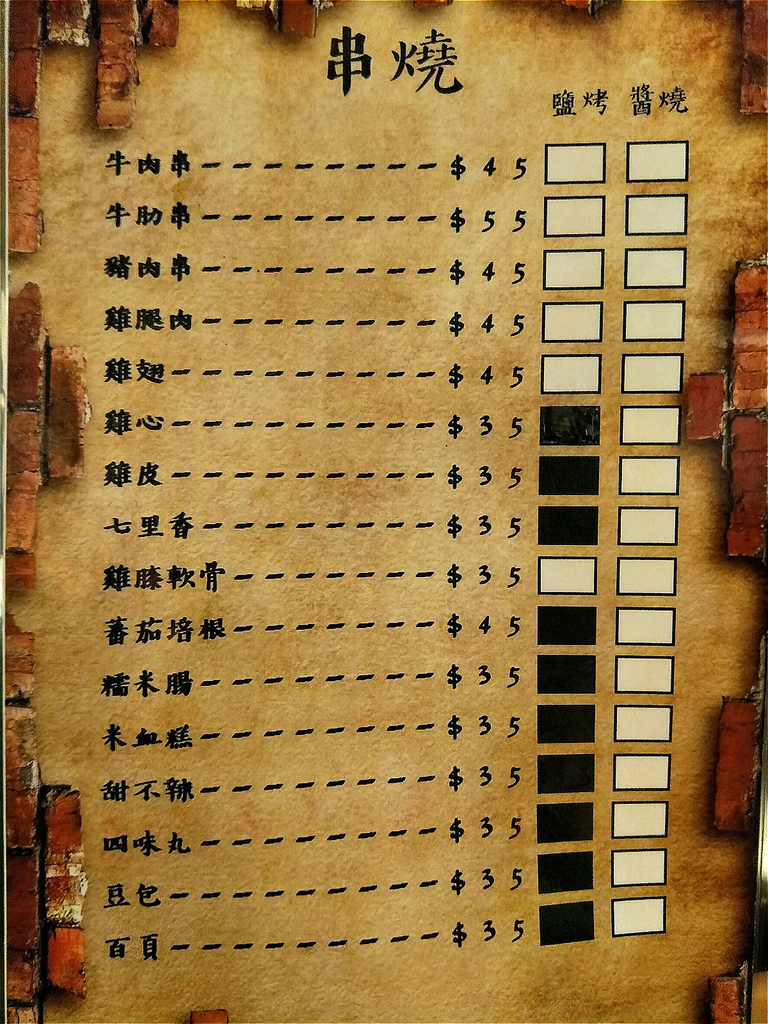 串燒
鹽烤 醬燒
牛肉串－－－－－－－－$45
牛肋串－－－－－－－－$55
豬肉串－－－－－－－－$45
雞腿肉－－－－－－－－$45
雞翅－－－－－－－－－$45
雞心－－－－－－－－－$35
雞皮－－－－－－－－－$35
七里香－－－－－－－－$35
雞膝軟骨－－－－－－－$35
蕃茄培根－－－－－－－$45
糯米腸－－－－－－－－$35
米血糕－－－－－－－－$35
甜不辣－－－－－－－－$35
四味丸－－－－－－－－$35
豆包－－－－－－－－－$35
百頁－－－－－－－－－$35